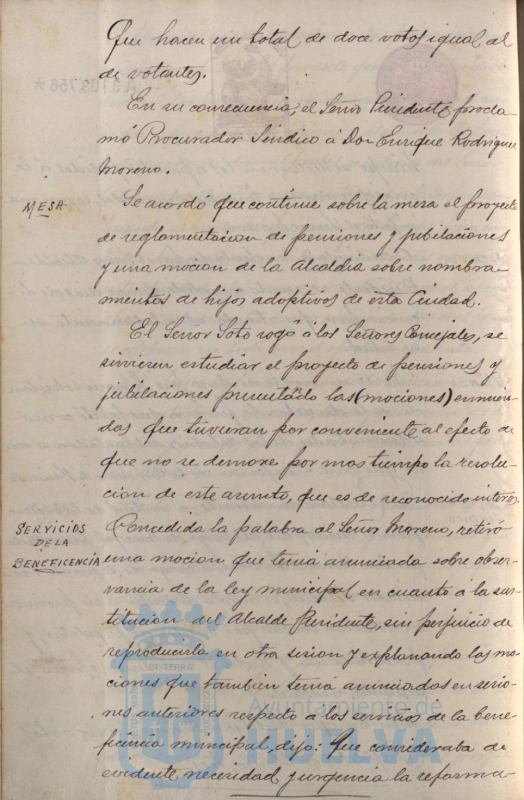 Que hacen un total de doce votos igual al
de votantes.
En su consecuencia, el Señor Presidente procla-
mó Procurador Síndico á Don Enrique Rodriguez
Moreno.
MESA
Se acordó que continúe sobre la mesa el proyecto
de reglamentacion de pensiones y jubilaciones
y una mocion de la Alcaldia sobre nombra-
mientos de hijos adoptivos de esta Ciudad.
El Señor Soto rogó á los Señores Concejales, se
sirviesen estudiar el proyecto de pensiones y
jubilaciones presentando las (mociones) enmien-
das que tuvieran por conveniente al efecto de
que no se demore por mas tiempo la resolu-
cion de este asunto, que es de reconocido interés.
SERVICIOS
DE LA
BENEFICENCIA
Concedida la palabra al Señor Moreno, retiró
una mocion que tenia anunciada sobre obser-
vancia de la ley municipal en cuanto á la sus-
titucion del Alcalde Presidente, sin perjuicio de
reproducirla en otra sesion y explanando las mo-
ciones que tambien tenia anunciadas en sesio-
nes anteriores respecto á los servicios de la bene-
ficencia municipal, dijo: Que consideraba de
evidente necesidad y urgencia la reforma
Ayuntamiento de
HUELVA